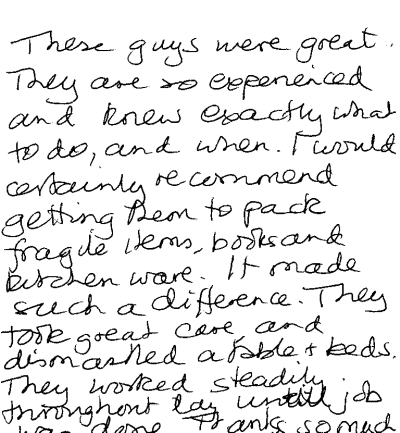 These guys were great.
They are so experienced
and knew exactly what
to do, and when. I would
certainly recommend
getting them to pack
fragile items, books and
kitchen ware. It made
such a difference. They
took great care and
dismantled a table + beds.
They worked steadily
throughout day until job
was done. Thanks so much